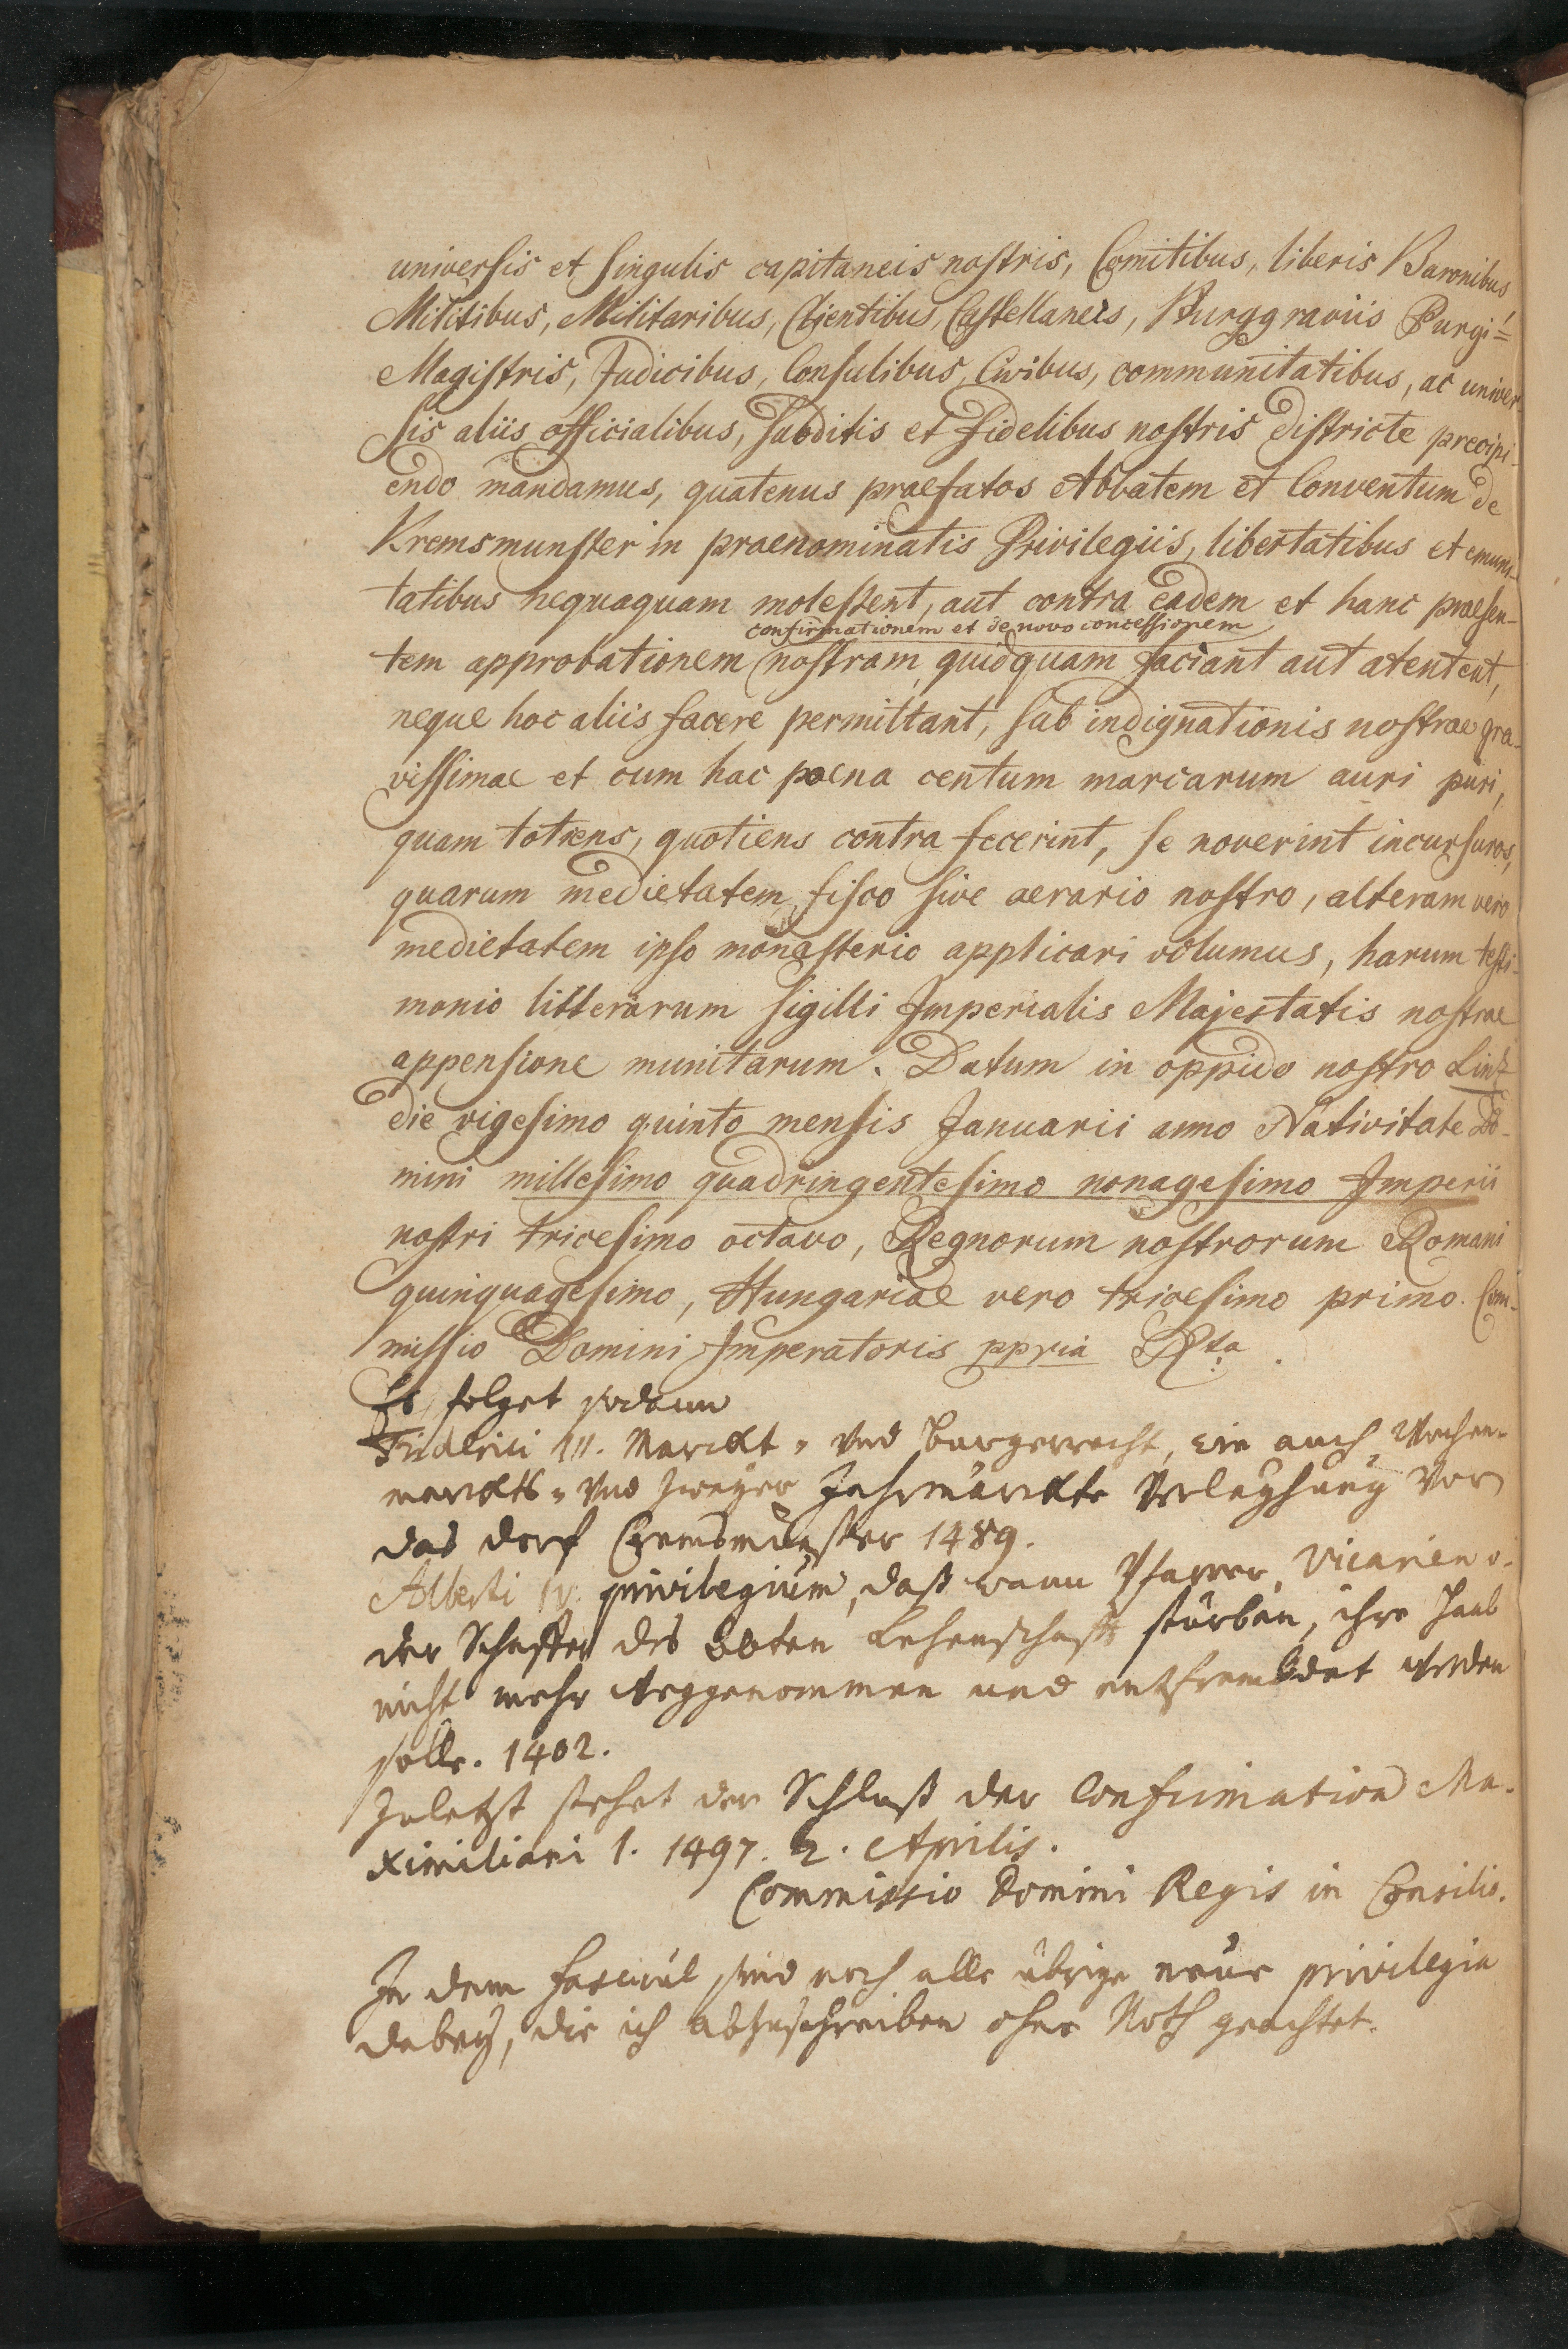 universis et singulis capitaneis nostris, Comitibus, liberis Baronibus,
Militibus, Militaribus, Clientibus, Castellaneis, Burggraviis Purgi=
Magistris, Judicibus, Consulibus, Civibus, communitatibus, ac univer-
sis aliis officialibus, subditis et fidelibus nostris districte precipi-
endo mandamus, quatenus praefatos Abbatem et Conventum de
Kremsmunster in praenominatis Privilegiis, libertatibus et emuni-
tatibus nequaquam molestent, aut contra eadem et hanc praesen-
confirmationem et de novo concessionem
tem approbationem nostram quidquam faciant aut atentent,
neque hoc aliis facere permittant, sub indignationis nostrae gra-
vissimae et cum hac poena centum marcarum auri puri,
quam totiens, quotiens contra fecerint, se noverint incursuros,
quarum medietatem fisco sive aerario nostro, alteram vero
medietatem ipso monasterio applicari volumus, harum testi-
monio litterarum sigilli Imperialis Majestatis nostrae
appensione munitarum. Datum in oppido nostro Lintz
die vigesimo quinto mensis Januarii anno Nativitate Do-
mini millesimo quadringentesimo nonagesimo Imperii
nostri tricesimo octavo, Regnorum nostrorum Romani
quinquagesimo, Hungariae vero tricesimo primo. Com-
missio Domini Imperatoris ppria Rta.
Es folget sodann
Friderici III. Marckt- und Burgerrecht, wie auch Wochen-
marckts- und zweyer Jahrmärckte Verleyhung vor
das dorf Cremsmünster 1489.
Alberti IV. privilegium, daß wann Pfarrer, Vicarien o-
der Schaffer des Lehenschafft stürben, ihre Haab
nicht mehr weggenommen und entfrembdet werden
solle. 1402.
Zuletzt stehet der Schluß der Confirmation Ma-
ximiliani I. 1497. 2. Aprilis.
Commissio Domini Regis in Consilio.
In dem fascicul sind noch alle übrige neue privilegia
dabey, die ich abzuschreiben ohne Noth geachtet.